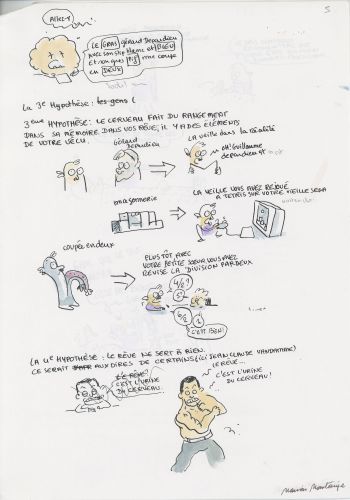 ALLEZ-Y
5
LE GRAS GÉRARD DEPARDIEU
AVEC SON SLIP BLANC et BLEU
ET son GROS me coupe
en DEUX
La 3e Hypothèse : les gens (
3eme HYPOTHÈSE: LE CERVEAU FAIT DU RANGEMENT
DANS SA MÉMOIRE DANS VOS RÊVE, IL Y A DES ÉLÉMENTS
DE VOTRE VÉCU.
LA VEILLE dans LA RÉALITÉ
GÉRARD
Depardieu
OH! Guillaume
depardieu
LA VEILLE VOUS AVEZ REJOUÉ
A TETRIS SUR VOTRE VIEILLE SEGA
coupée en deux
PLUS TÔT AVEC
VOTRE PETITE SOEUR VOUS AVEZ
RÉVISÉ LA DIVISION PAR DEUX
4/2?
2
6/2
3
C'EST BIEN!
LA 4e HYPOTHÈSE : LE RÊVE NE SERT À RIEN.
CE SERAIT AUX DIRES DE CERTAINS (ICI JEAN CLAUDE VANDAMME)
LE RÊVE
C'EST L'URINE
DU CERVEAU
LE RÊVE...
C'EST L'URINE
DU CERVEAU!